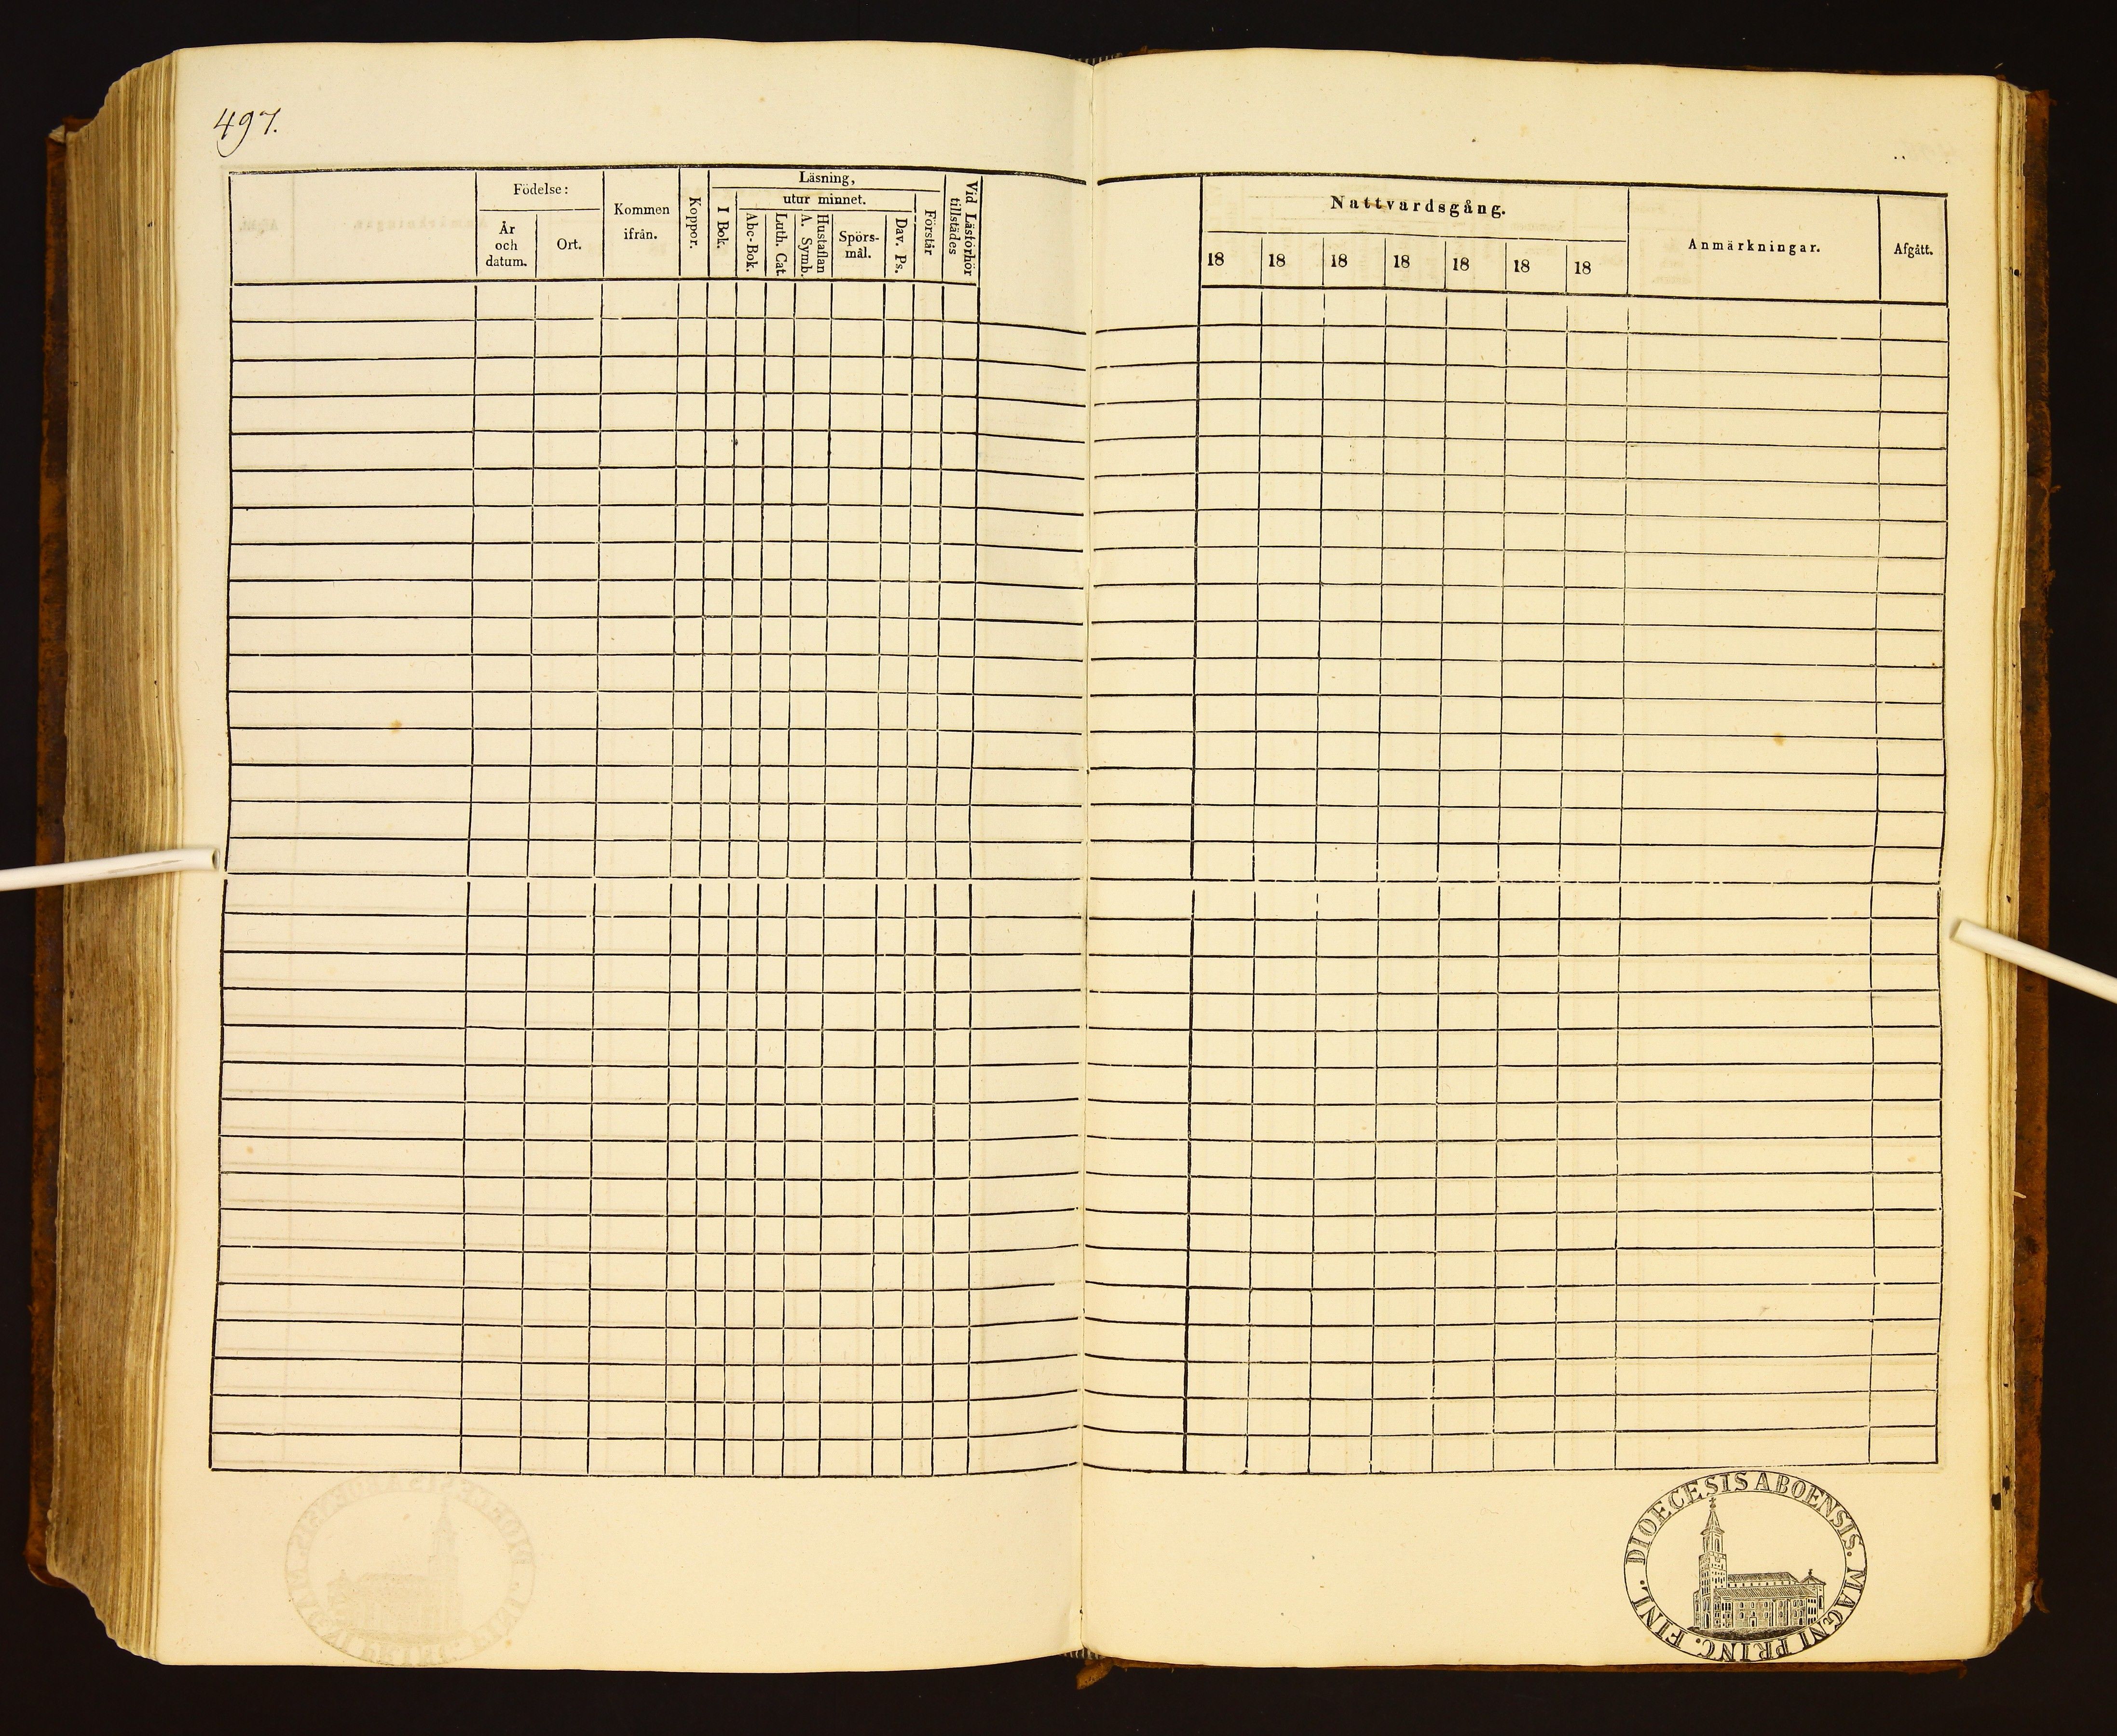 497.
Födelse:
År
och
datum.
Ort.
Kommen
ifrån.
Koppor.
Läsning,
I Bok.
utur minnet.
Abc-Bok.
Luth. Cat.
Hustaflan
A. Symb.
Spörs-
mål.
Dav. Ps.
Förstår
Vid Läsförhör
tillstädes
Nattvardsgång.
18 18 18 18 18 18 18
Anmärkningar.
Afgått.
DIOECESIS ABOENSIS. MAGNI PRINC. FINL.